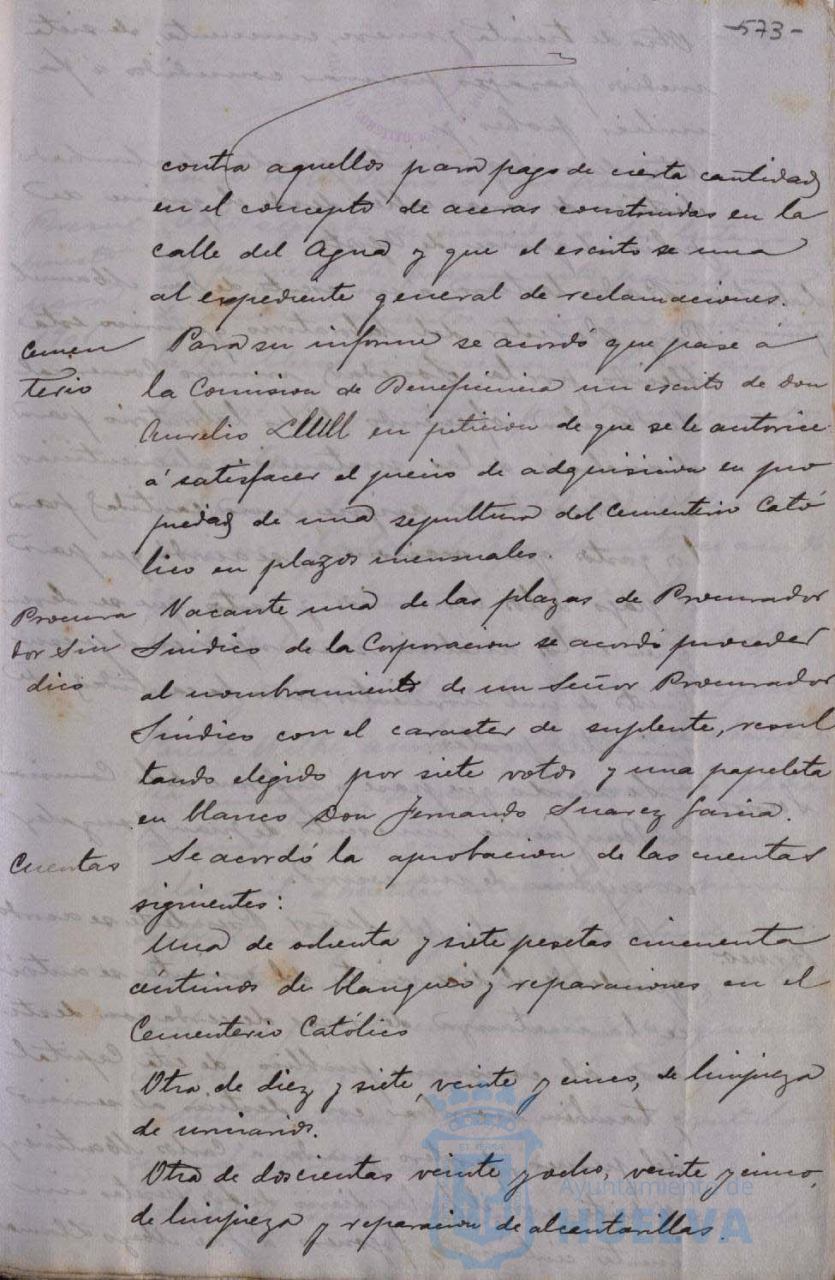 -573-
contra aquellos para pago de cierta cantidad
en el concepto de aceras construidas en la
calle del Agua y que el escrito se una
al expediente general de reclamaciones.
Cemen
terio
Para su informe se acordó que pase á
la Comision de Beneficencia un escrito de don
Aurelio en peticion de que se le autorice
á satisfacer el precio de adquisicion en pro
piedad de una sepultura del Cementerio Cató
lico en plazos mensuales.
Procura
dor Sin
dico
Vacante una de las plazas de Procurador
Sindico de la Corporacion se acordó proceder
al nombramiento de un Señor Procurador
Sindico con el caracter de suplente, resul
tando elegido por siete votos y una papeleta
en blanco Don Fernando Suarez Garcia.
Cuentas
Se acordó la aprobacion de las cuentas
siguientes:
Una de ochenta y siete pesetas cincuenta
céntimos de blanqueo y reparaciones en el
Cementerio Católico
Otra de diez y siete, veinte y cinco, de limpieza
de urinarios.
Otra de doscientas veinte y ocho, veinte y cinco,
de limpieza y reparacion de alcantarillas.
Ayuntamiento de
HUELVA